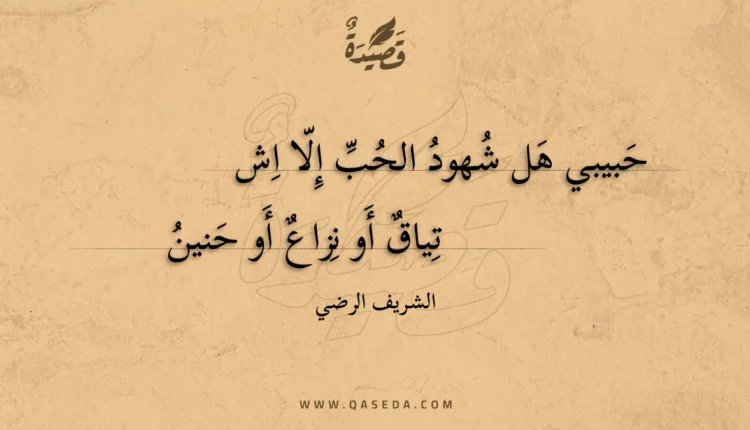 قَصِيدَةٌ
حَبيبي هَل شُهودُ الحُبِّ إِلّا اِش
تِياقٌ أَو نِزاعٌ أَو حَنينُ
الشريف الرضي
WWW.QASEDA.COM